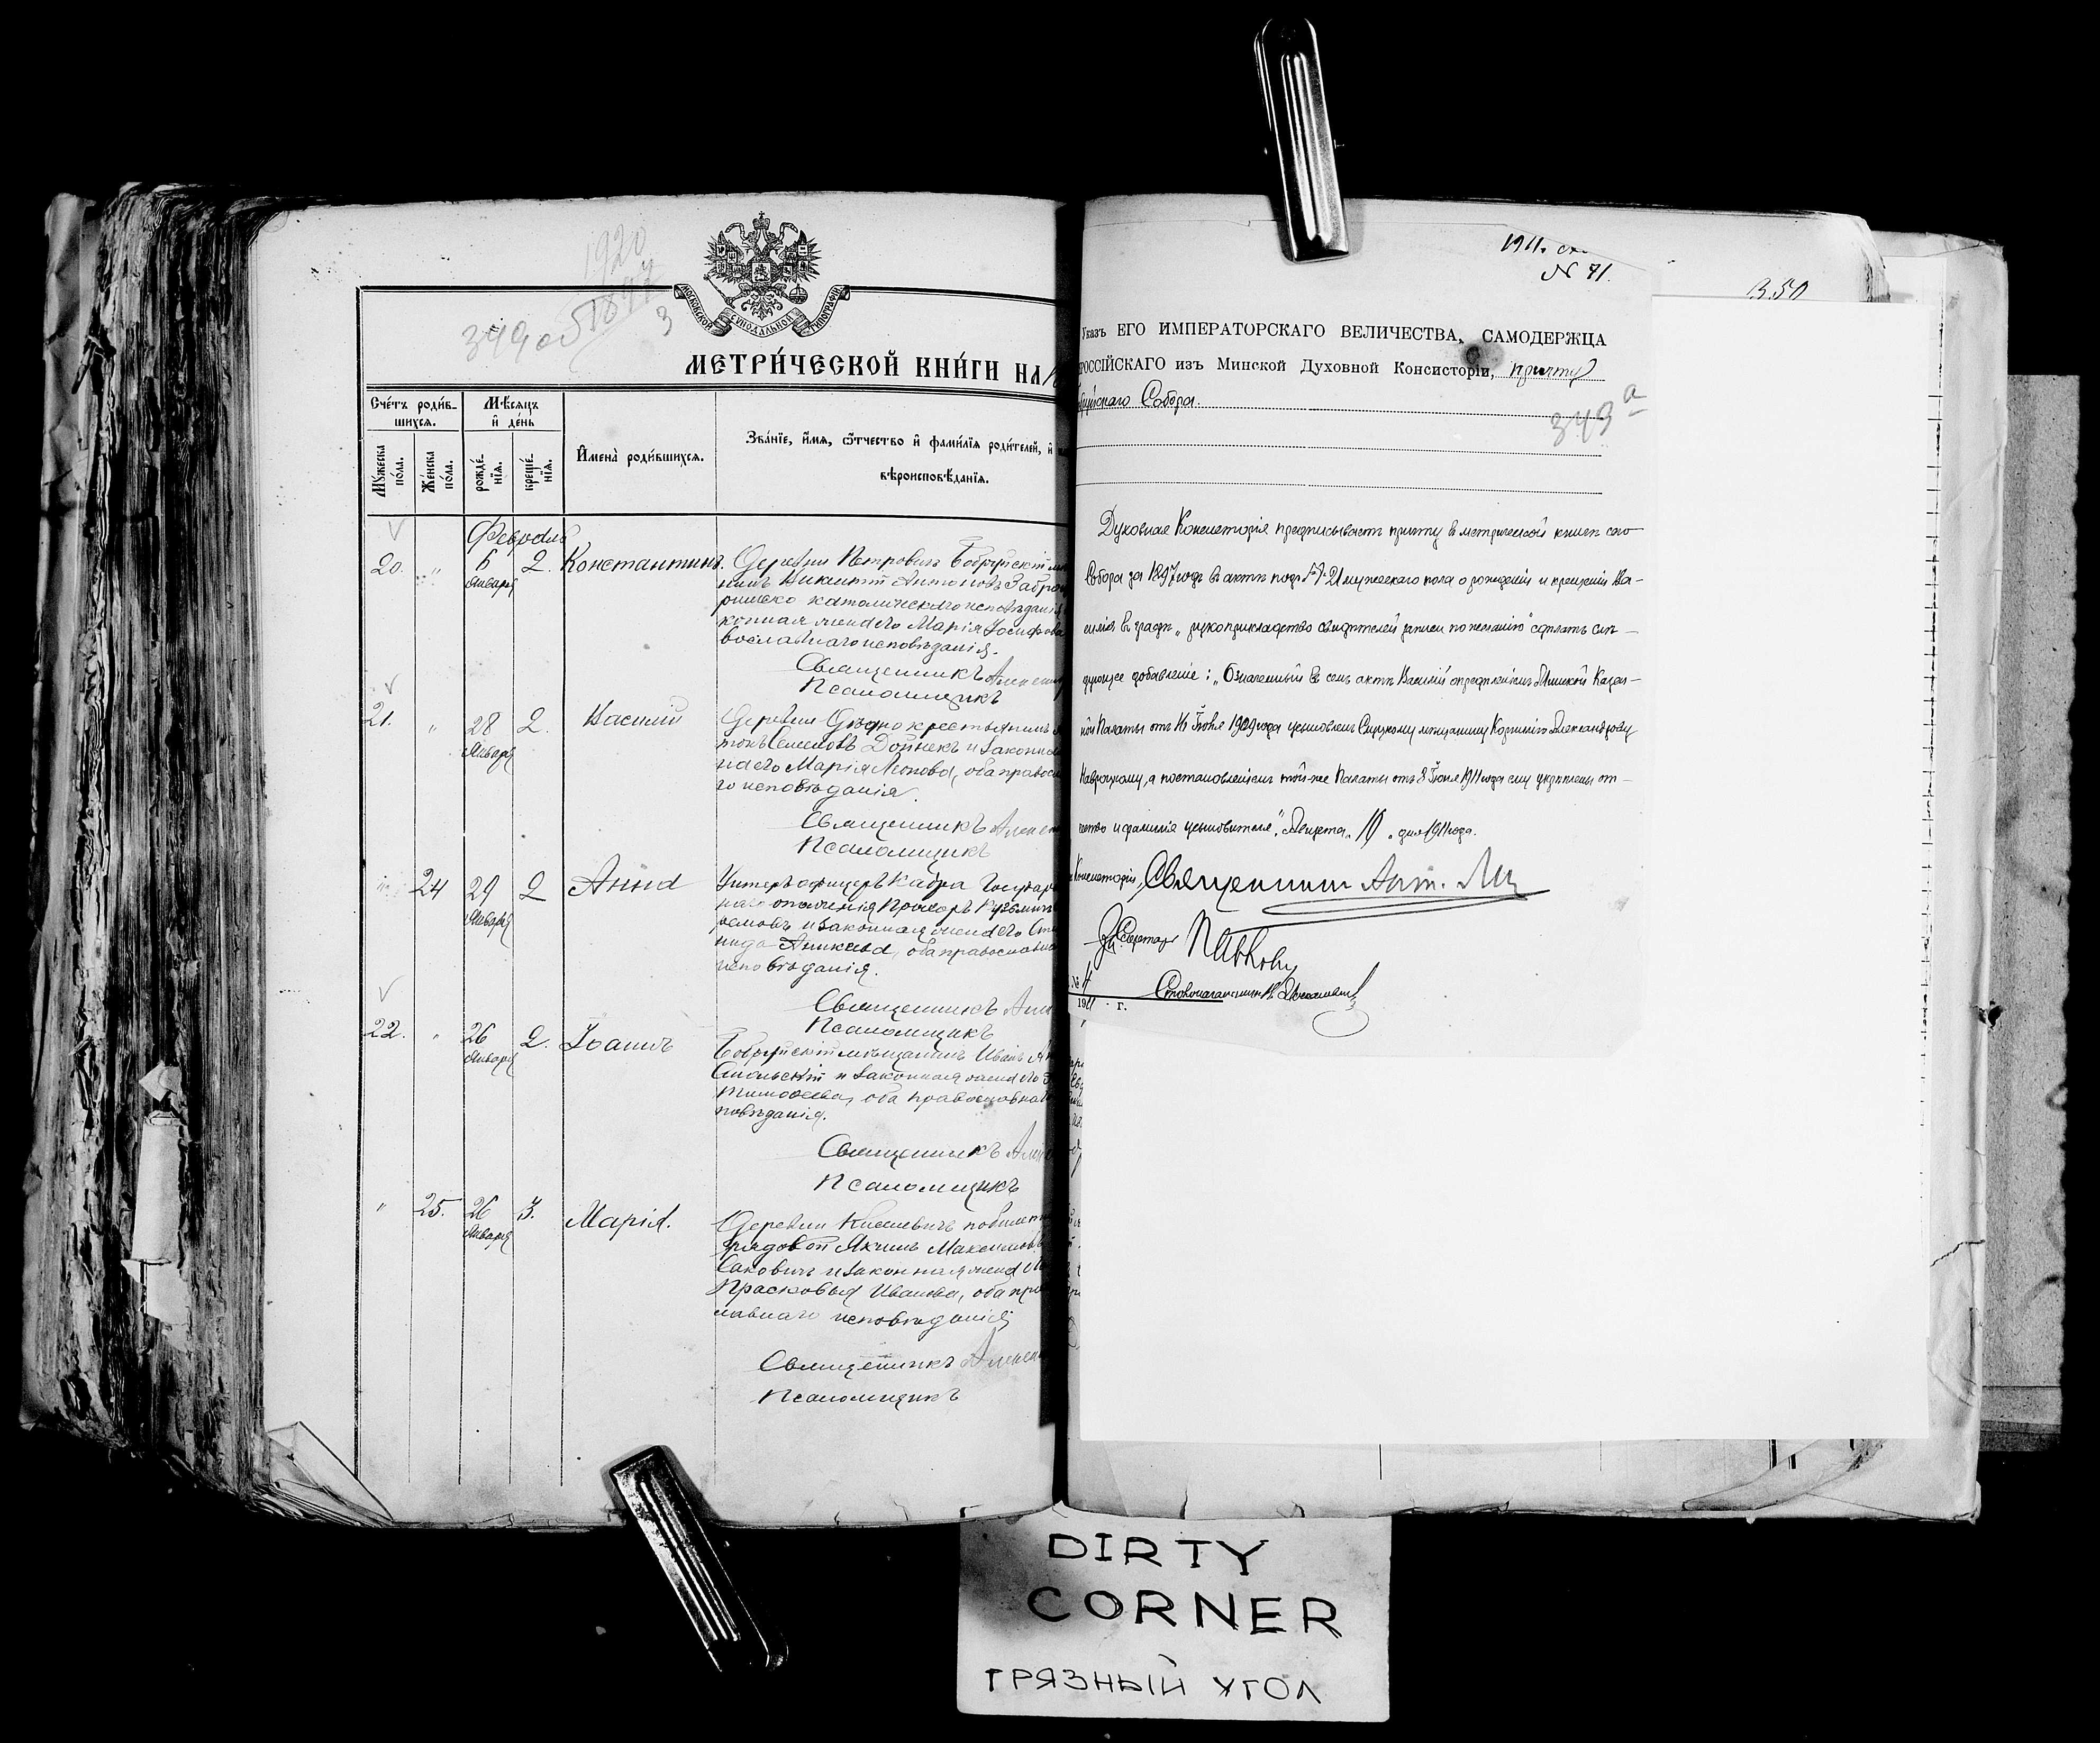 1920
1897
349 об
3
МОСКОВСКОЙ СУНОДАЛЬНОЙ ТИПОГРАФІИ
МЕТРИ́ЧЕСКОЙ КНИ́ГИ НА
Сче́тъ роди́в-
шихся.
Мѣ́сяцъ
и҆ де́нь
Му́жеска
по́ла.
Же́нска
по́ла.
рожде́-
нїя.
креще́-
нїя.
И҆мена̀ роди́вшихся.
Зва́нїе, и҆́мя, ѻ҆́тчество и҆ фами́лїя роди́телей, и҆
вѣроисповѣ́данїя.
Февраль
20. " 6 Января 2. Константинъ. Деревни Петровичъ Бобруйскій мѣ
нинъ Викентій Антоновъ Забро
римско католическаго исповѣданія
конная жена его Марія Іосифова
вославнаго исповѣданія.
Священникъ
Псаломщикъ
21. " 28 Января 2. Василій Деревни крестьянинъ
Семеновъ Дойнекъ и законная
на его Марія Леонова, оба правосл
го исповѣданія.
Священникъ
Псаломщикъ
" 24 29 Января 2 Анна Унтеръ офицеръ Кадра Государ
наго ополченія Прохоръ Кузьминъ
и законная жена его
оба православна
исповѣданія.
Священникъ
Псаломщикъ
22. " 26 Января 2. Іоаннъ Бобруйскій мѣщанинъ Иванъ
и законная жена его
Тимоѳеева, оба православнаго
повѣданія.
Священникъ
Псаломщикъ
" 25. 26 Января 3. Марія. Деревни Киселевичъ
рядовой Якимъ Максимовъ
Саковичъ и законная жена
Прасковья Иванова, оба пра
славнаго исповѣданія
Священникъ
Псаломщикъ
1911.
№ 71.
350
Указъ ЕГО ИМПЕРАТОРСКАГО ВЕЛИЧЕСТВА, САМОДЕРЖЦА
РОССІЙСКАГО изъ Минской Духовной Консисторіи, причту
Собора.
349 а
Духовная Консисторія предписываетъ причту въ метрической книгѣ сего
Собора за 1897 годъ въ актѣ подъ № 21 мужескаго пола о рожденіи и крещеніи Ва-
силія въ графѣ „рукоприкладство свидѣтелей записи по желанію" сдѣлать слѣ-
дующее добавленіе: „Означенный въ семъ актѣ Василій опредѣленіемъ Минской Казен-
ной Палаты отъ 16 Іюня 1909 года усыновленъ мѣщанину Корнилію Александрову
Навроцкому, а постановленіемъ той-же Палаты отъ 8 Іюня 1911 года ему укрѣплены от-
чество и фамилія усыновителя". Августа „ 10 „ дня 1911 года.
Консисторіи, Священникъ Ант.
Секретарь
Столоначальникъ
1911 г.
DIRTY
CORNER
ГРЯЗНЫЙ УГОЛ